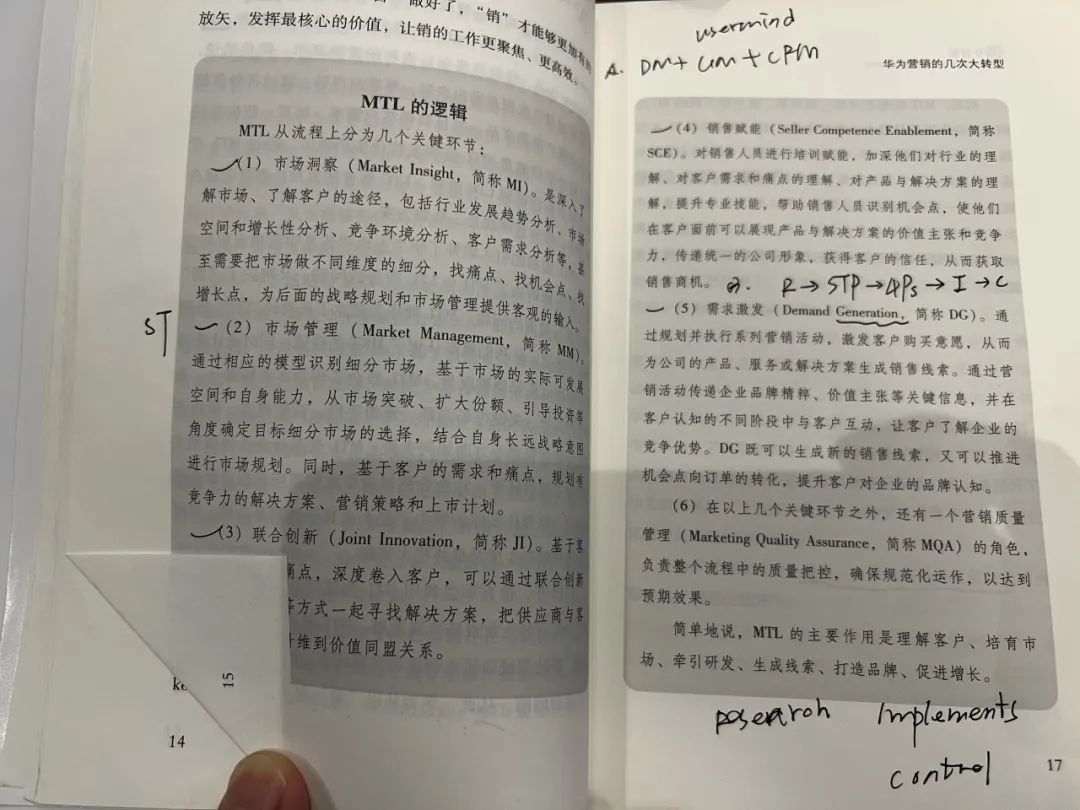 做好了，“销”才能够更加有的
放矢，发挥最核心的价值，让销的工作更聚焦、更高效。
MTL 的逻辑
MTL 从流程上分为几个关键环节：
（1）市场洞察（Market Insight，简称 MI）。是深入了
解市场、了解客户的途径，包括行业发展趋势分析、市场
空间和增长性分析、竞争环境分析、客户需求分析等，甚
至需要把市场做不同维度的细分，找痛点、找机会点、找
增长点，为后面的战略规划和市场管理提供客观的输入。
ST
（2）市场管理（Market Management，简称 MM）。
通过相应的模型识别细分市场，基于市场的实际可发展
空间和自身能力，从市场突破、扩大份额、引导投资等
角度确定目标细分市场的选择，结合自身长远战略意图
进行市场规划。同时，基于客户的需求和痛点，规划有
竞争力的解决方案、营销策略和上市计划。
（3）联合创新（Joint Innovation，简称 JI）。基于客
痛点，深度卷入客户，可以通过联合创新
等方式一起寻找解决方案，把供应商与客
维到价值同盟关系。
15
14
usermind
A. DM+ UM + CPM
华为营销的几次大转型
（4）销售赋能（Seller Competence Enablement，简称
SCE）。对销售人员进行培训赋能，加深他们对行业的理
解、对客户需求和痛点的理解、对产品与解决方案的理
解，提升专业技能，帮助销售人员识别机会点，使他们
在客户面前可以展现产品与解决方案的价值主张和竞争
力，传递统一的公司形象，获得客户的信任，从而获取
销售商机。
R→STP→4Ps→I→C
（5）需求激发（Demand Generation，简称 DG）。通
过规划并执行系列营销活动，激发客户购买意愿，从而
为公司的产品、服务或解决方案生成销售线索。通过营
销活动传递企业品牌精粹、价值主张等关键信息，并在
客户认知的不同阶段中与客户互动，让客户了解企业的
竞争优势。DG 既可以生成新的销售线索，又可以推进
机会点向订单的转化，提升客户对企业的品牌认知。
（6）在以上几个关键环节之外，还有一个营销质量
管理（Marketing Quality Assurance，简称 MQA）的角色，
负责整个流程中的质量把控，确保规范化运作，以达到
预期效果。
简单地说，MTL 的主要作用是理解客户、培育市
场、牵引研发、生成线索、打造品牌、促进增长。
implements
control
17